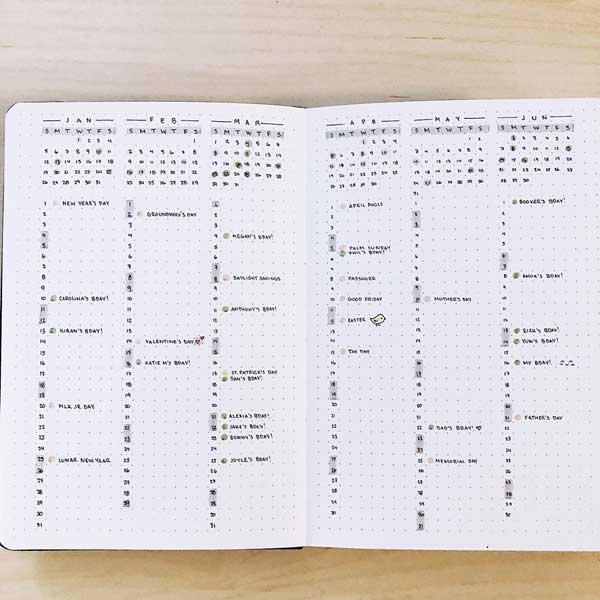 JAN
S M T W T F S
1 2 3 4
5 6 7 8 9 10 11
12 13 14 15 16 17 18
19 20 21 22 23 24 25
26 27 28 29 30 31
1 NEW YEAR'S DAY
2
3
4
5
6
7
8
9
10 CAROLINA'S BDAY!
11
12
13 KIRAN'S BDAY!
14
15
16
17
18
19
20 MLK JR DAY
21
22
23
24
25 LUNAR NEW YEAR
26
27
28
29
30
31
FEB
S M T W T F S
1
2 3 4 5 6 7 8
9 10 11 12 13 14 15
16 17 18 19 20 21 22
23 24 25 26 27 28 29
1
2 GROUNDHOG'S DAY
3
4
5
6
7
8
9
10
11
12
13
14 VALENTINE'S DAY
15
16 KATIE M'S BDAY!
17
18
19
20
21
22
23
24
25
26
27
28
29
MAR
S M T W T F S
1 2 3 4 5 6 7
8 9 10 11 12 13 14
15 16 17 18 19 20 21
22 23 24 25 26 27 28
29 30 31
1
2
3
4 MEGAN'S BDAY!
5
6
7
8 DAYLIGHT SAVINGS
9
10
11 ANTHONY'S BDAY!
12
13
14
15
16
17 ST. PATRICK'S DAY
DAN'S BDAY!
18
19
20
21 ALEXIA'S BDAY!
22 JAKE'S BDAY!
23 BONNY'S BDAY!
24
25 JOYCE'S BDAY!
26
27
28
29
30
31
APR
S M T W T F S
1 2 3 4
5 6 7 8 9 10 11
12 13 14 15 16 17 18
19 20 21 22 23 24 25
26 27 28 29 30
1 APRIL FOOLS
2
3
4
5 PALM SUNDAY
BDAY!
6
7
8 PASSOVER
9
10 GOOD FRIDAY
11
12 EASTER
13
14
15 TAX DAY
16
17
18
19
20
21
22
23
24
25
26
27
28
29
30
MAY
S M T W T F S
1 2
3 4 5 6 7 8 9
10 11 12 13 14 15 16
17 18 19 20 21 22 23
24 25 26 27 28 29 30
31
1
2
3
4
5
6
7
8
9
10 MOTHER'S DAY
11
12
13
14
15
16
17
18
19
20
21
22 DAD'S BDAY!
23
24
25 MEMORIAL DAY
26
27
28
29
30
31
JUN
S M T W T F S
1 2 3 4 5 6
7 8 9 10 11 12 13
14 15 16 17 18 19 20
21 22 23 24 25 26 27
28 29 30
1 BOOKER'S BDAY!
2
3
4
5
6
7
8 BDAY!
9
10
11
12
13 RICK'S BDAY!
14 BDAY!
15
16 MY BDAY!
17
18
19
20
21 FATHER'S DAY
22
23
24
25
26
27
28
29
30